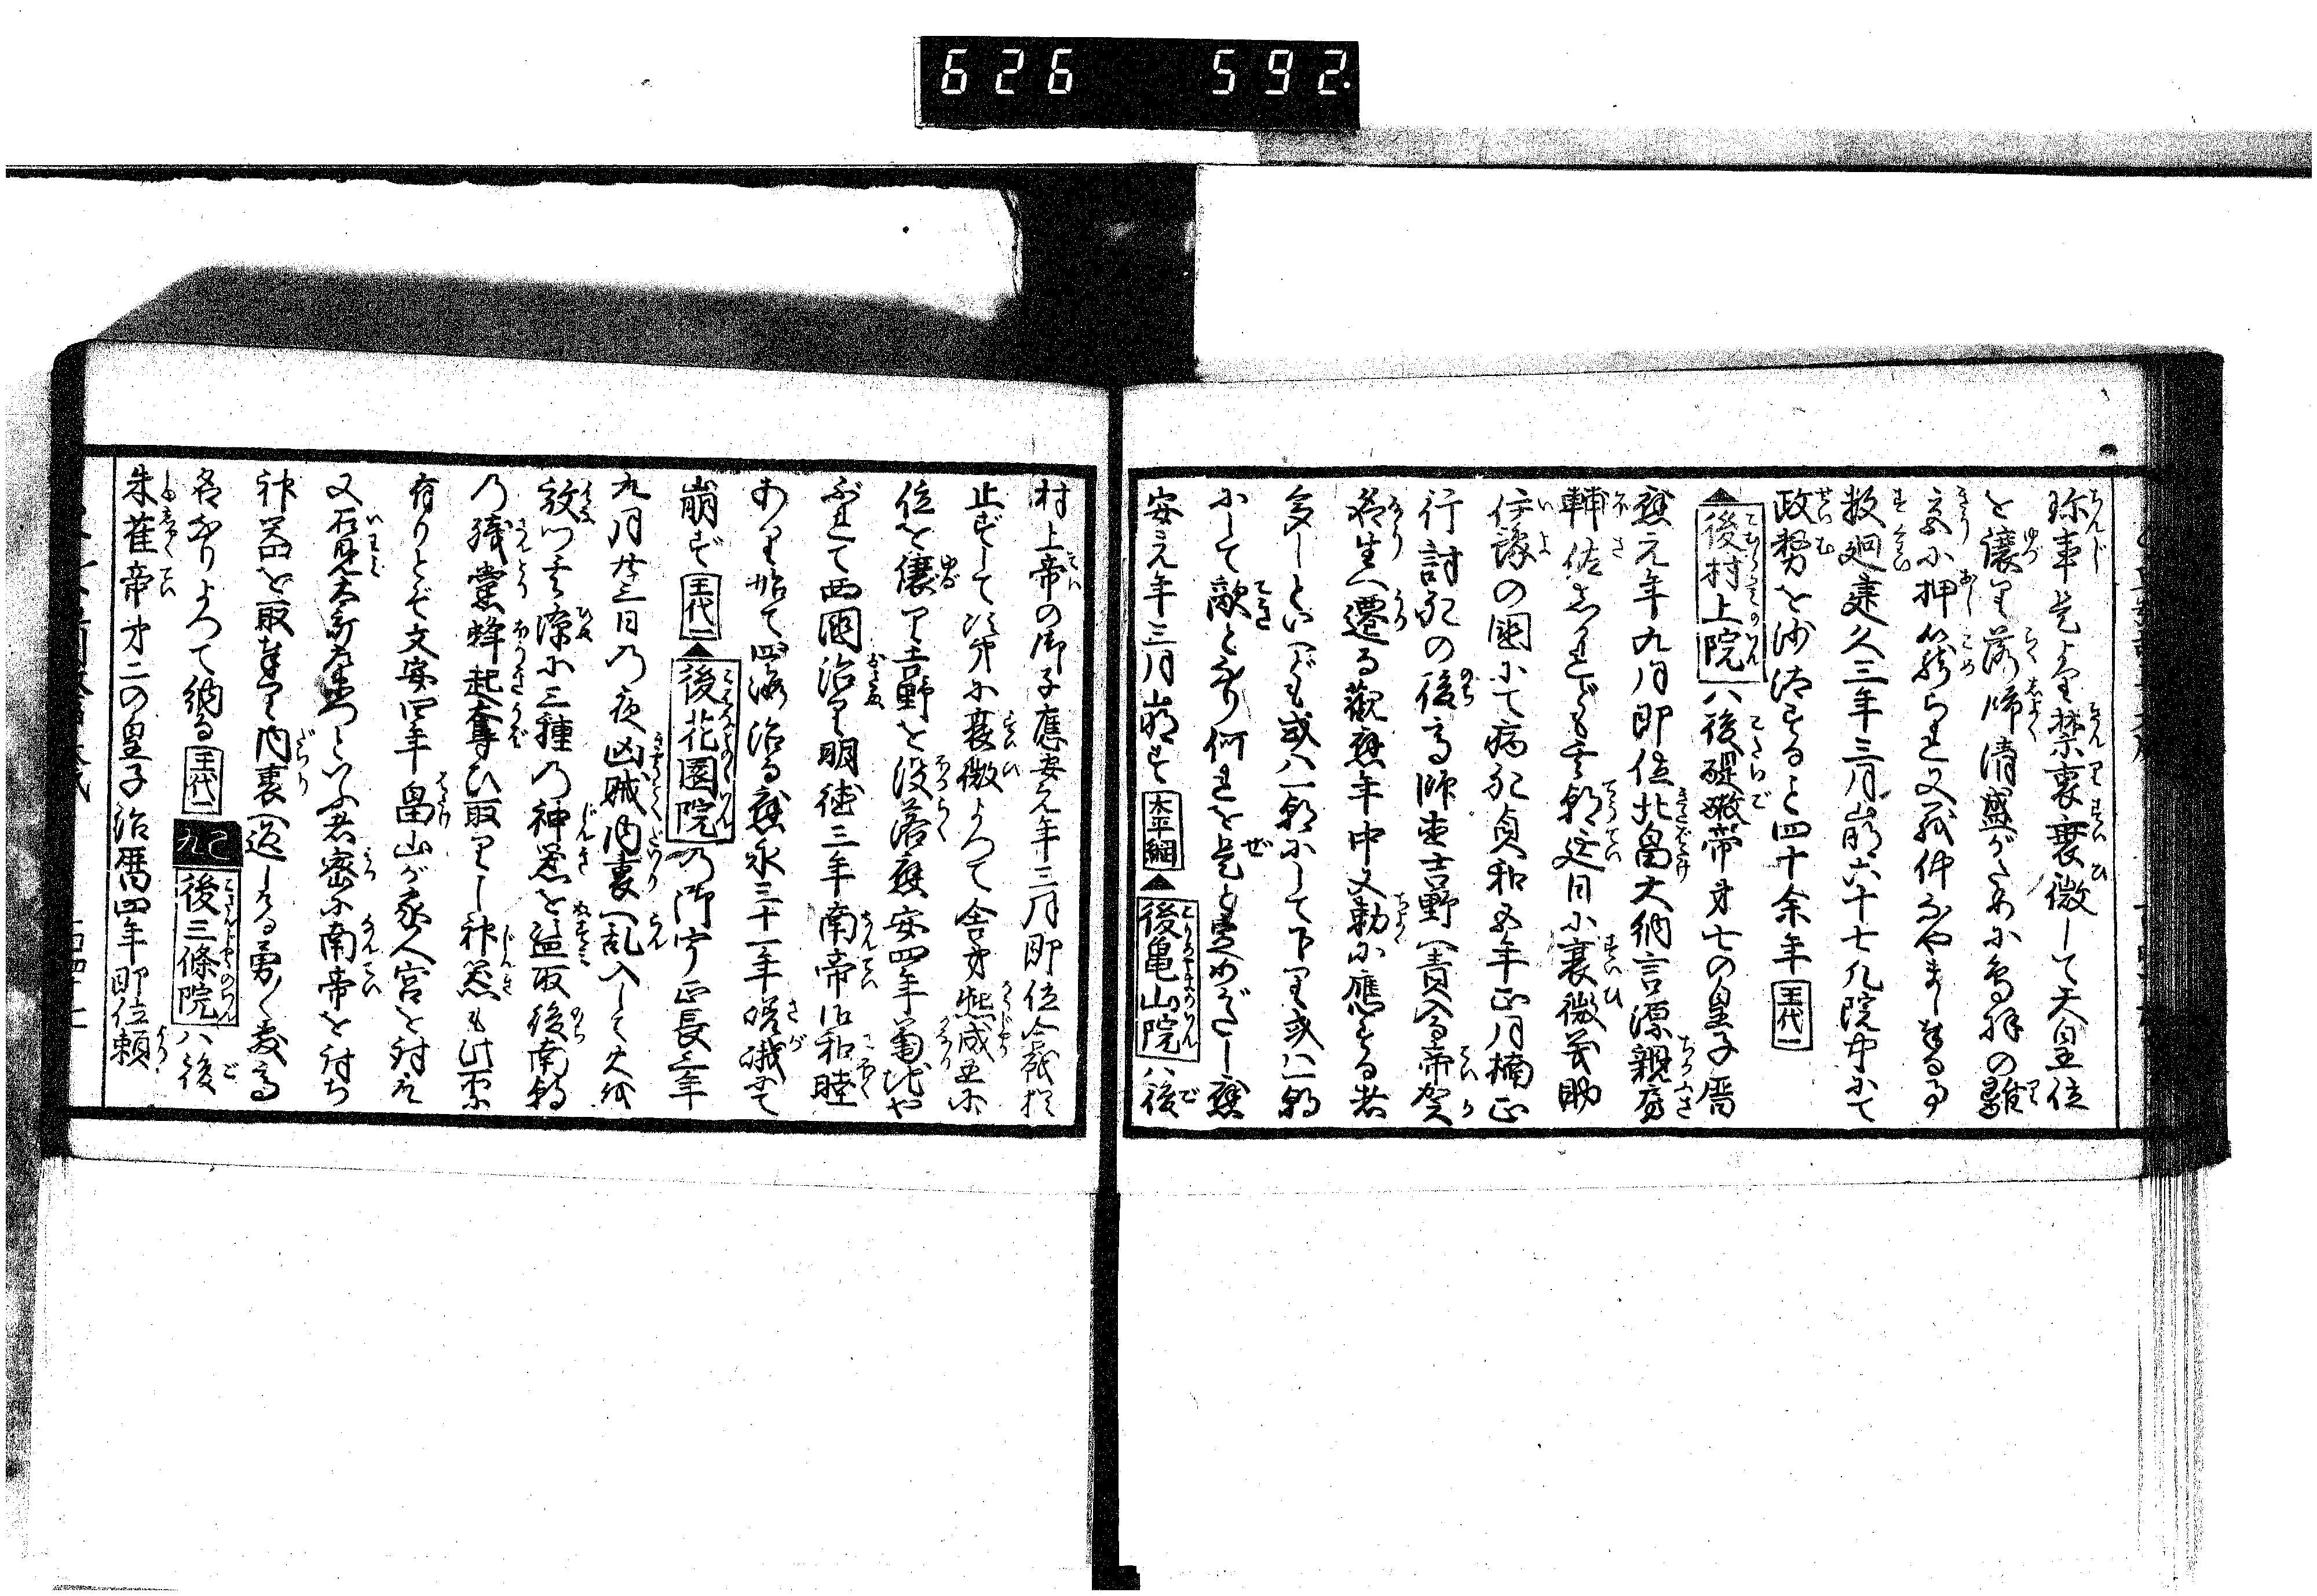 626 592.
珍事是より禁裏衰微して天皇位
を譲り落餝清盛がために鳥羽の離
宮に押籠られ又義仲になやまさるる事
数廻建久三年三月崩六十七凡院中にて
政務を沙汰すること四十余年 王代一
▲後村上院ハ後醍醐帝第七の皇子暦
應元年九月即位北畠大納言源親房
輔佐されども朝廷日に衰微義助
伊豫の国にて病死貞和五年正月楠正
行討死の後高師直吉野へ責入帝賀
名生へ遷る観應年中又勅に應ずる者
多しといへども或ハ朝にして下り或ハ朝
にして敵となり何れを是と定めがたし應
安元年三月崩ず 太平綱 ▲後亀山院ハ後
村上帝の御子應安元年三月即位合戦
止ずして次第に衰微よつて舎弟熈成王に
位を譲り吉野を没落應安四年
ぶれて西国治り明徳三年南帝御和睦
ありて始て四海治る應永三十一年嵯峨にて
崩ず 王代一 ▲後花園院の御宇正長三年
九月廿三日の夜凶賊内裏へ乱入して火を
放つ其隙に三種の神器を盗取後南朝
の残党蜂起奪ひ取りし神器も此宮に
有りとぞ文安四年畠山が家人宮を討て
又石見太郎左衛門といふ者密に南帝を討ち
神器を取奉り内裏へ返しける
各なりよつて納る 王代一 後三條院ハ後
朱雀帝第二の皇子治暦四年即位頼